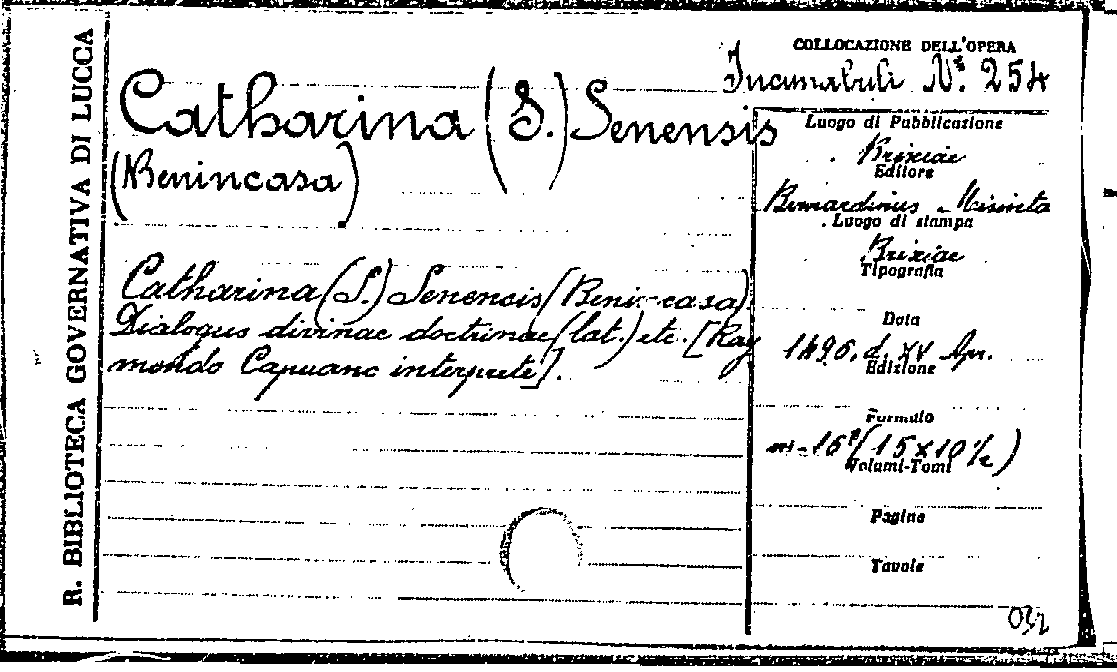 R. BIBLIOTECA GOVERNATIVA DI LUCCA
COLLOCAZIONE DELL'OPERA
Incunabuli N.º 254
Catharina (S.) Senensis
(Benincasa)
Catharina (S.) Senensis (Benincasa).
Dialogus divinae doctrinae (lat.) etc. [Ray
mondo Capuano interprete].
Luogo di Pubblicazione
Brixiae
Editore
Bernardinus Misinta
Luogo di stampa
Brixiae
Tipografia
Data
1496. d. XV Apr.
Edizione
Formato
in-16º (15x10½)
Volumi-Tomi
Pagine
Tavole
032